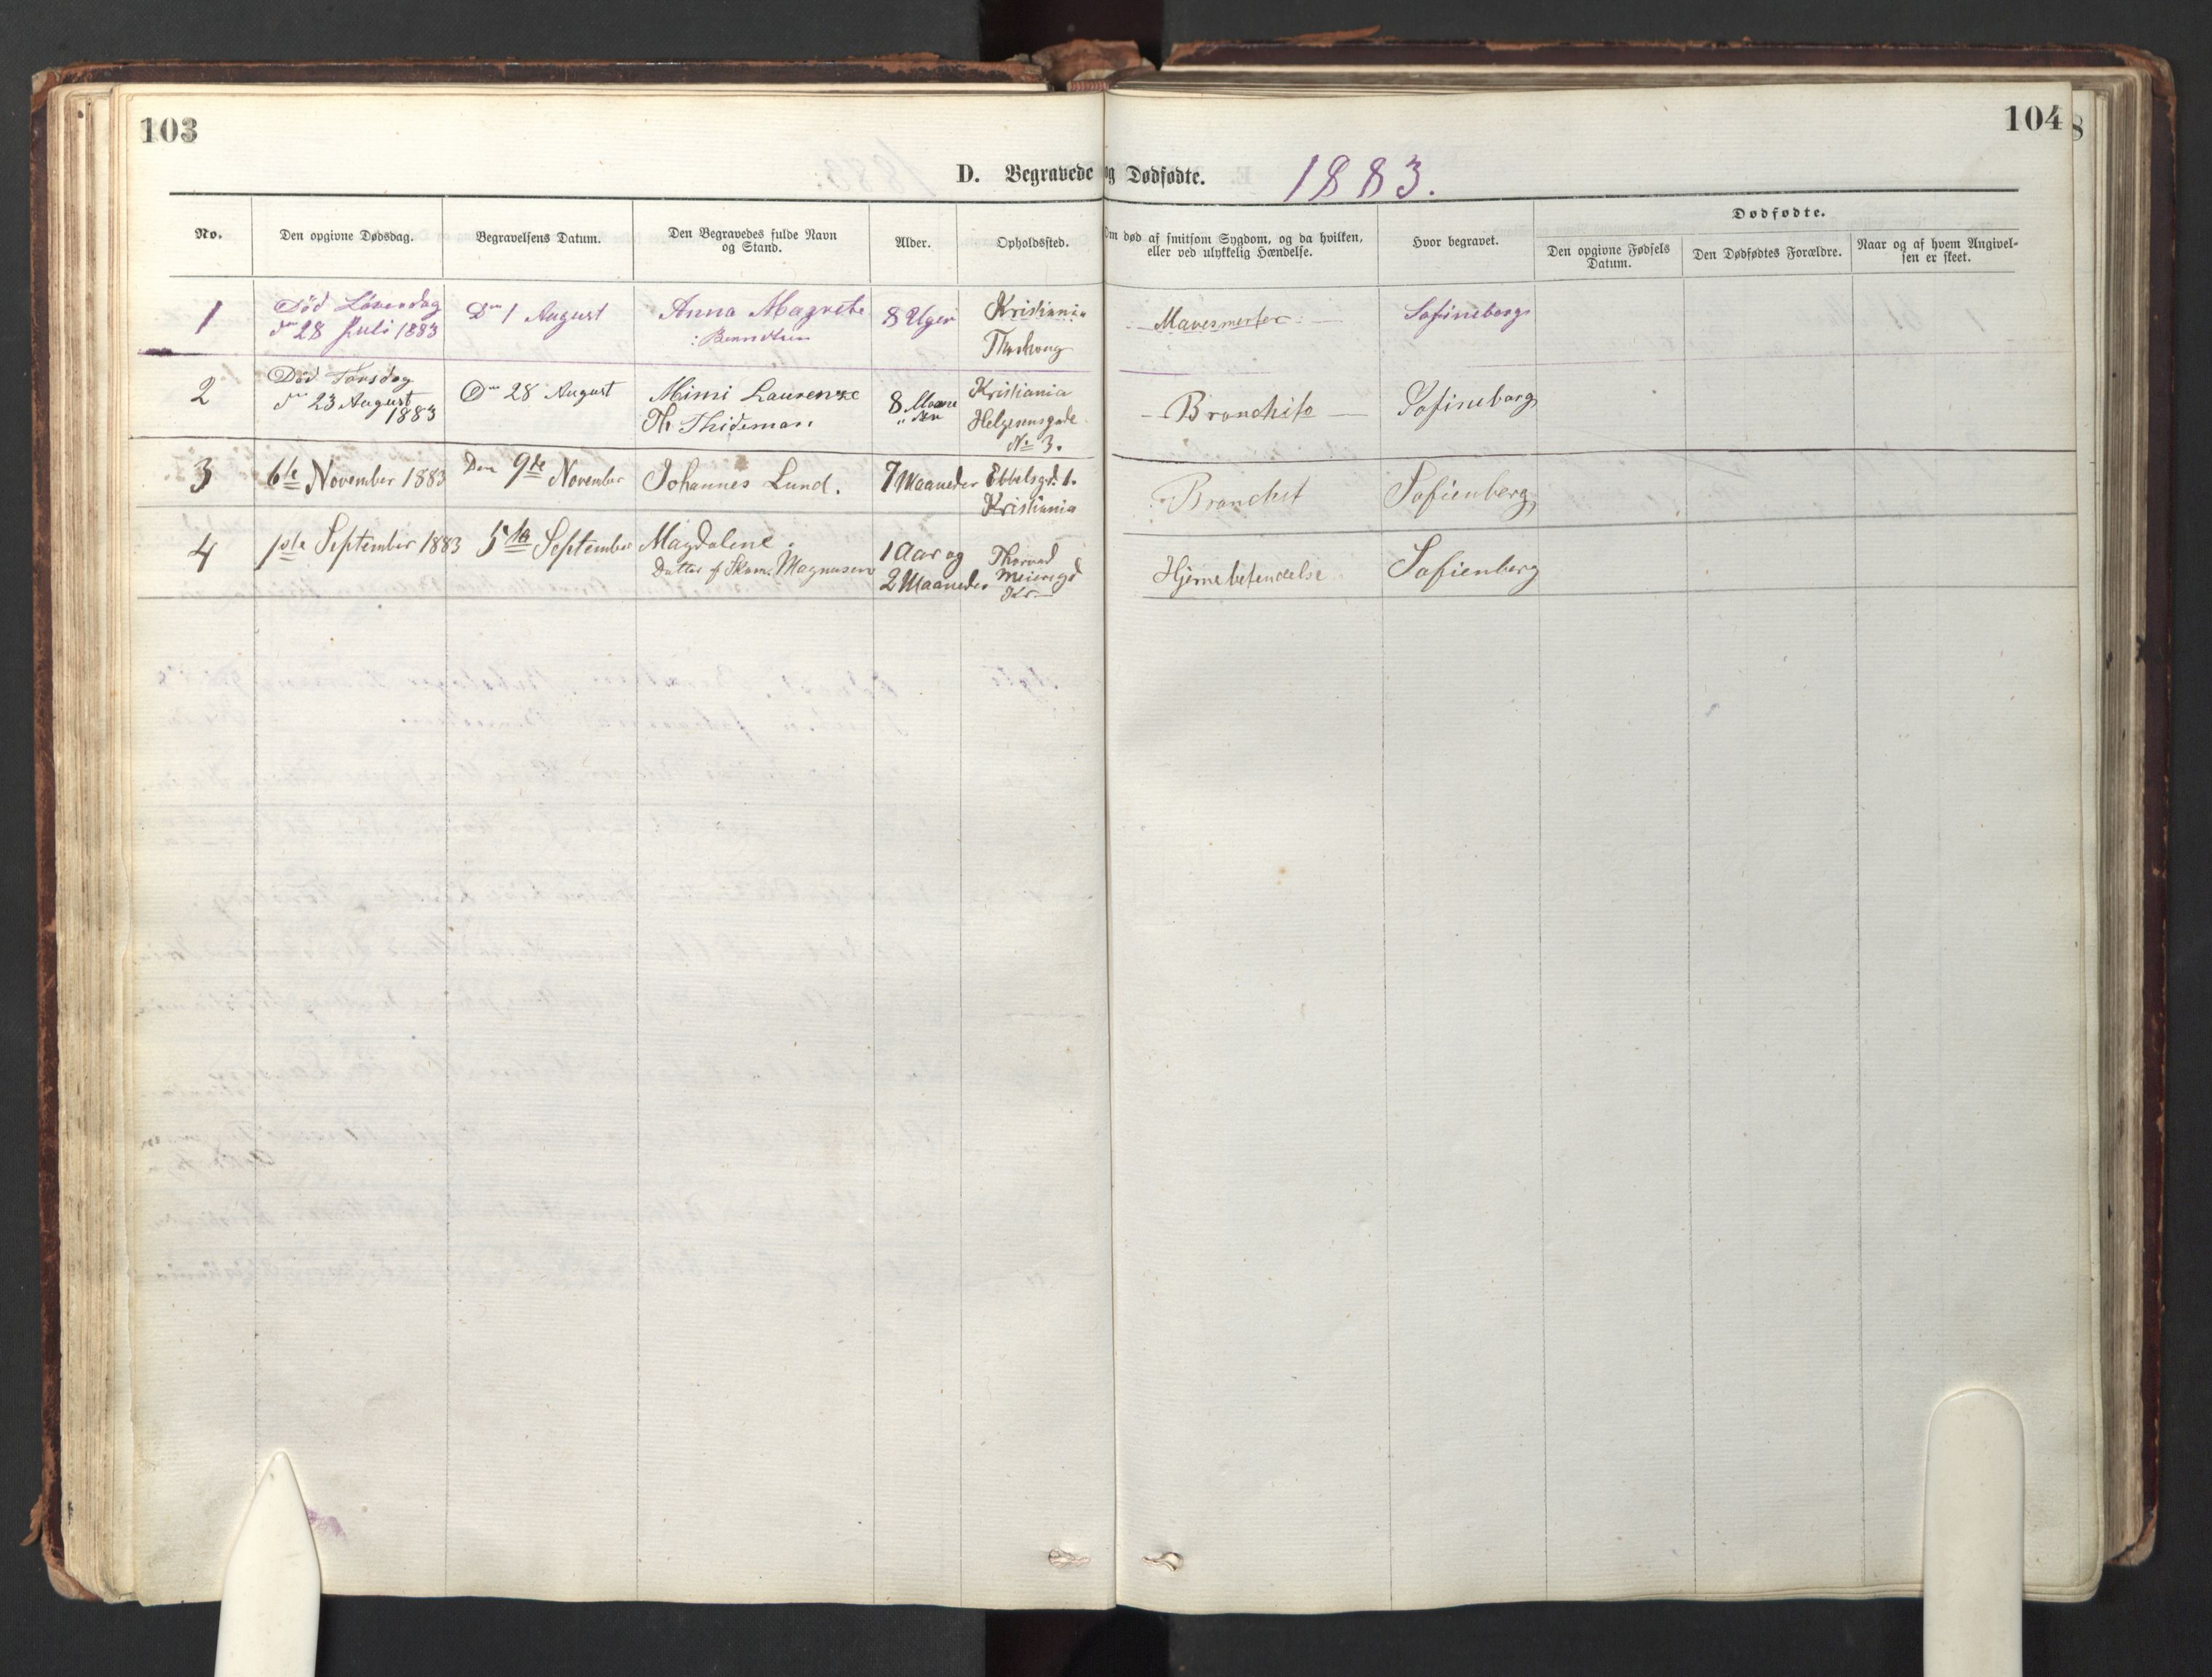 103
104
D. Begravede og Dødfødte. 1883.
No.
Den opgivne Dødsdag.
Begravelsens Datum.
Den Begravedes fulde Navn
og Stand.
Alder.
Opholdssted.
Om død af smitsom Sygdom, og da hvilken,
eller ved ulykkelig Hændelse.
Hvor begravet.
Dødfødte.
Den opgivne Fødsels
Datum.
Den Dødfødtes Forældre.
Naar og af hvem Angivel-
sen er skeet.
1
Död Löverdag
dn 28 Juli 1883
Dn 1 August
Anna Magrete
Berndtsen
8 Uger
Kristiania
Mavesmerter
Sofineberg
2
Död Torsdag
dn 23 August
1883
Dn 28 August
Mimi Laurenze
Th. Thideman
8
Kristiania
Helgesensgade
No 3.
Bronchit
Sofineberg
3
6te November 1883
Den 9te November
Johannes Lund.
7 Maaneder
Ebbelsgd. 1.
Kristiania
Bronchit
Sofienberg
4
1ste September 1883
5te September
Magdalene
Datter af Skom. Magnusen
1 Aar og
2 Maaneder
Thorvad
Meiersgd
Kr.
Hjernebetendelse
Sofienberg